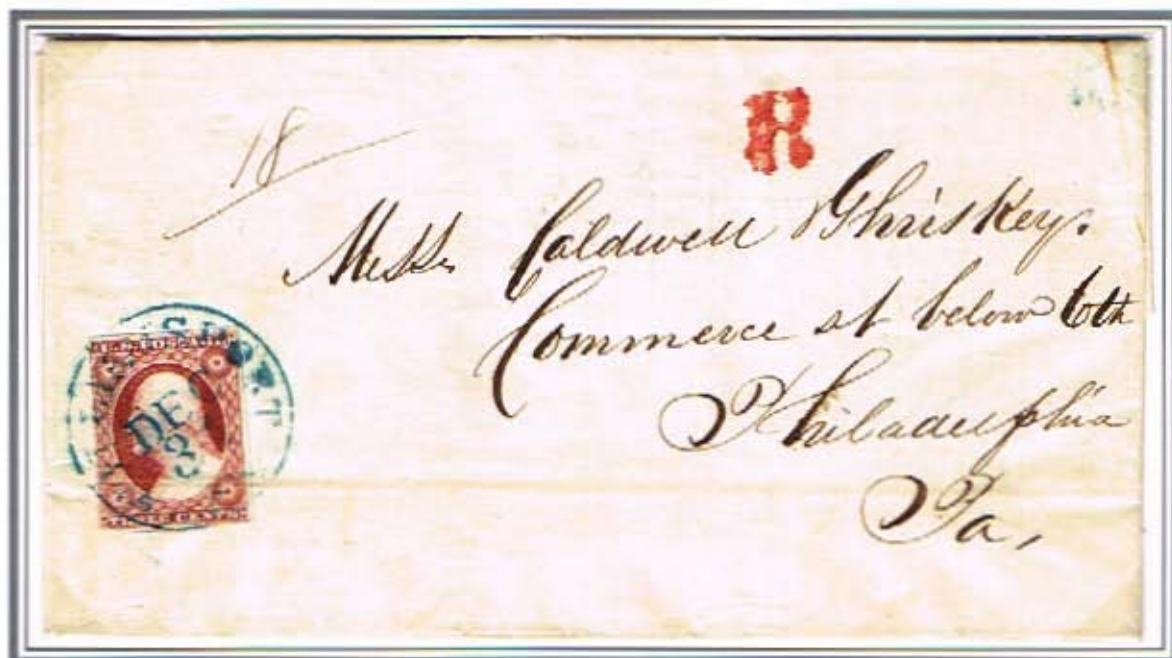 R
18
Messrs Caldwell & Ghriskey.
Commerce st below 6th
Philadelphia
Pa,
DEC
3